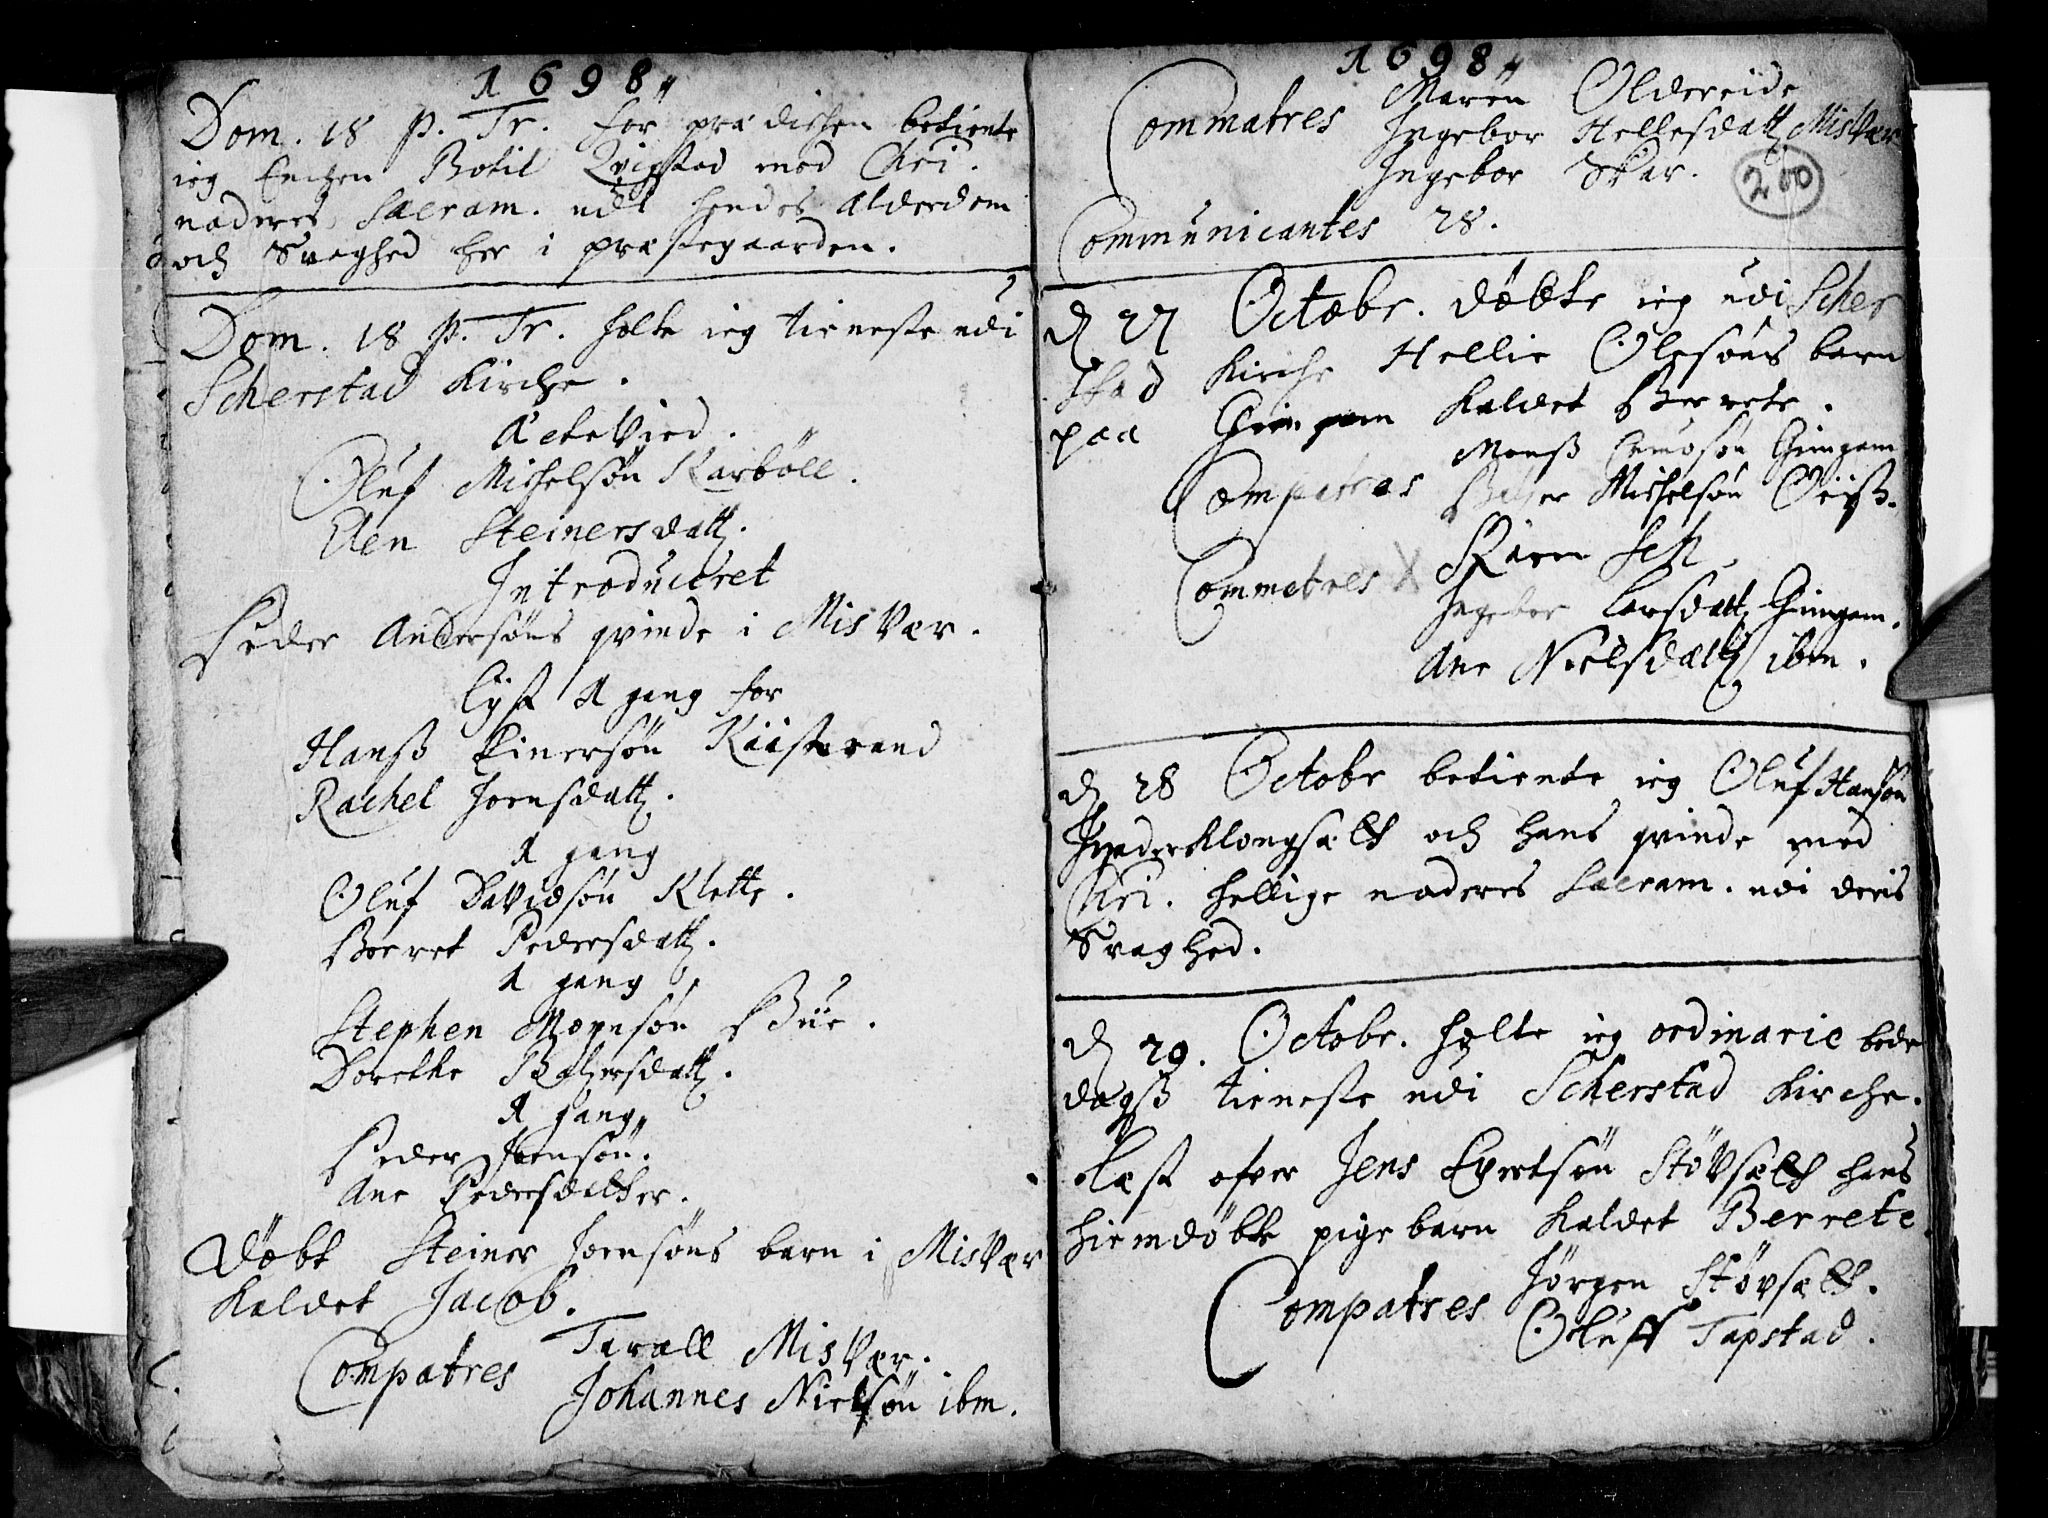 1698
Dom. 18 p. Tr. för prædichen betiente
ieg Enchen Botil Qvigstad med Chri.
naderes Sacram. udi hendes Alderdom
och Svaghed her i præstegaarden.
Dom. 18 p. Tr. holte ieg tieneste udi
Scherstad Kirche.
Oluf Michelsøn Karbøll.
Elen Steinersdatt.
Introduceret
Peder Andersøns qvinde i Misvær.
Lyst 1 gang for
Hanß Einersøn
Rachel Joensdatt.
1 gang
Oluf Davidsøn Klette.
Berret Pedersdatt.
1 gang
Stephen Mogensøn Bue.
Dorethe Baltzersdatt.
1 gang
Peder Jensøn.
Ane Pedersdatter.
Døbt Steiner Joensøns barn i Misvær
kaldet Jacob.
Compatres Tarall Misvær.
Johannes Nielsøn ibm.
1698
Commatres Maren Oldereide
Ingebor Hellesdatt Misvær
Ingebor Skar.
200
Communicantes 28.
d 27 Octobr. døbte ieg udi Scher
stad Kirche Hellie Olesøns barn
paa Gimgam kaldet Berrete.
Monß Gimgam
Compatres Baltzer Michelsøn Øeiß.
Commatres X Karen Seh
Ingebor Larsdatt Gimgam.
Ane Nielsdatt ibm.
d 28 Octobr betiente ieg Oluf Hansøn
och hans qvinde med
Chri. hellige naderes Sacram. udi deris
Svaghed.
d 29. Octobr. holte ieg ordinarie bede
dagß tieneste udi Scherstad Kirche.
Læst ofver Jens Evertsøn Støvsætt hans
hiemdøbte pigebarn kaldet Berrete
Compatres Jørgen Støvsætt.
Oluff Tapstad.